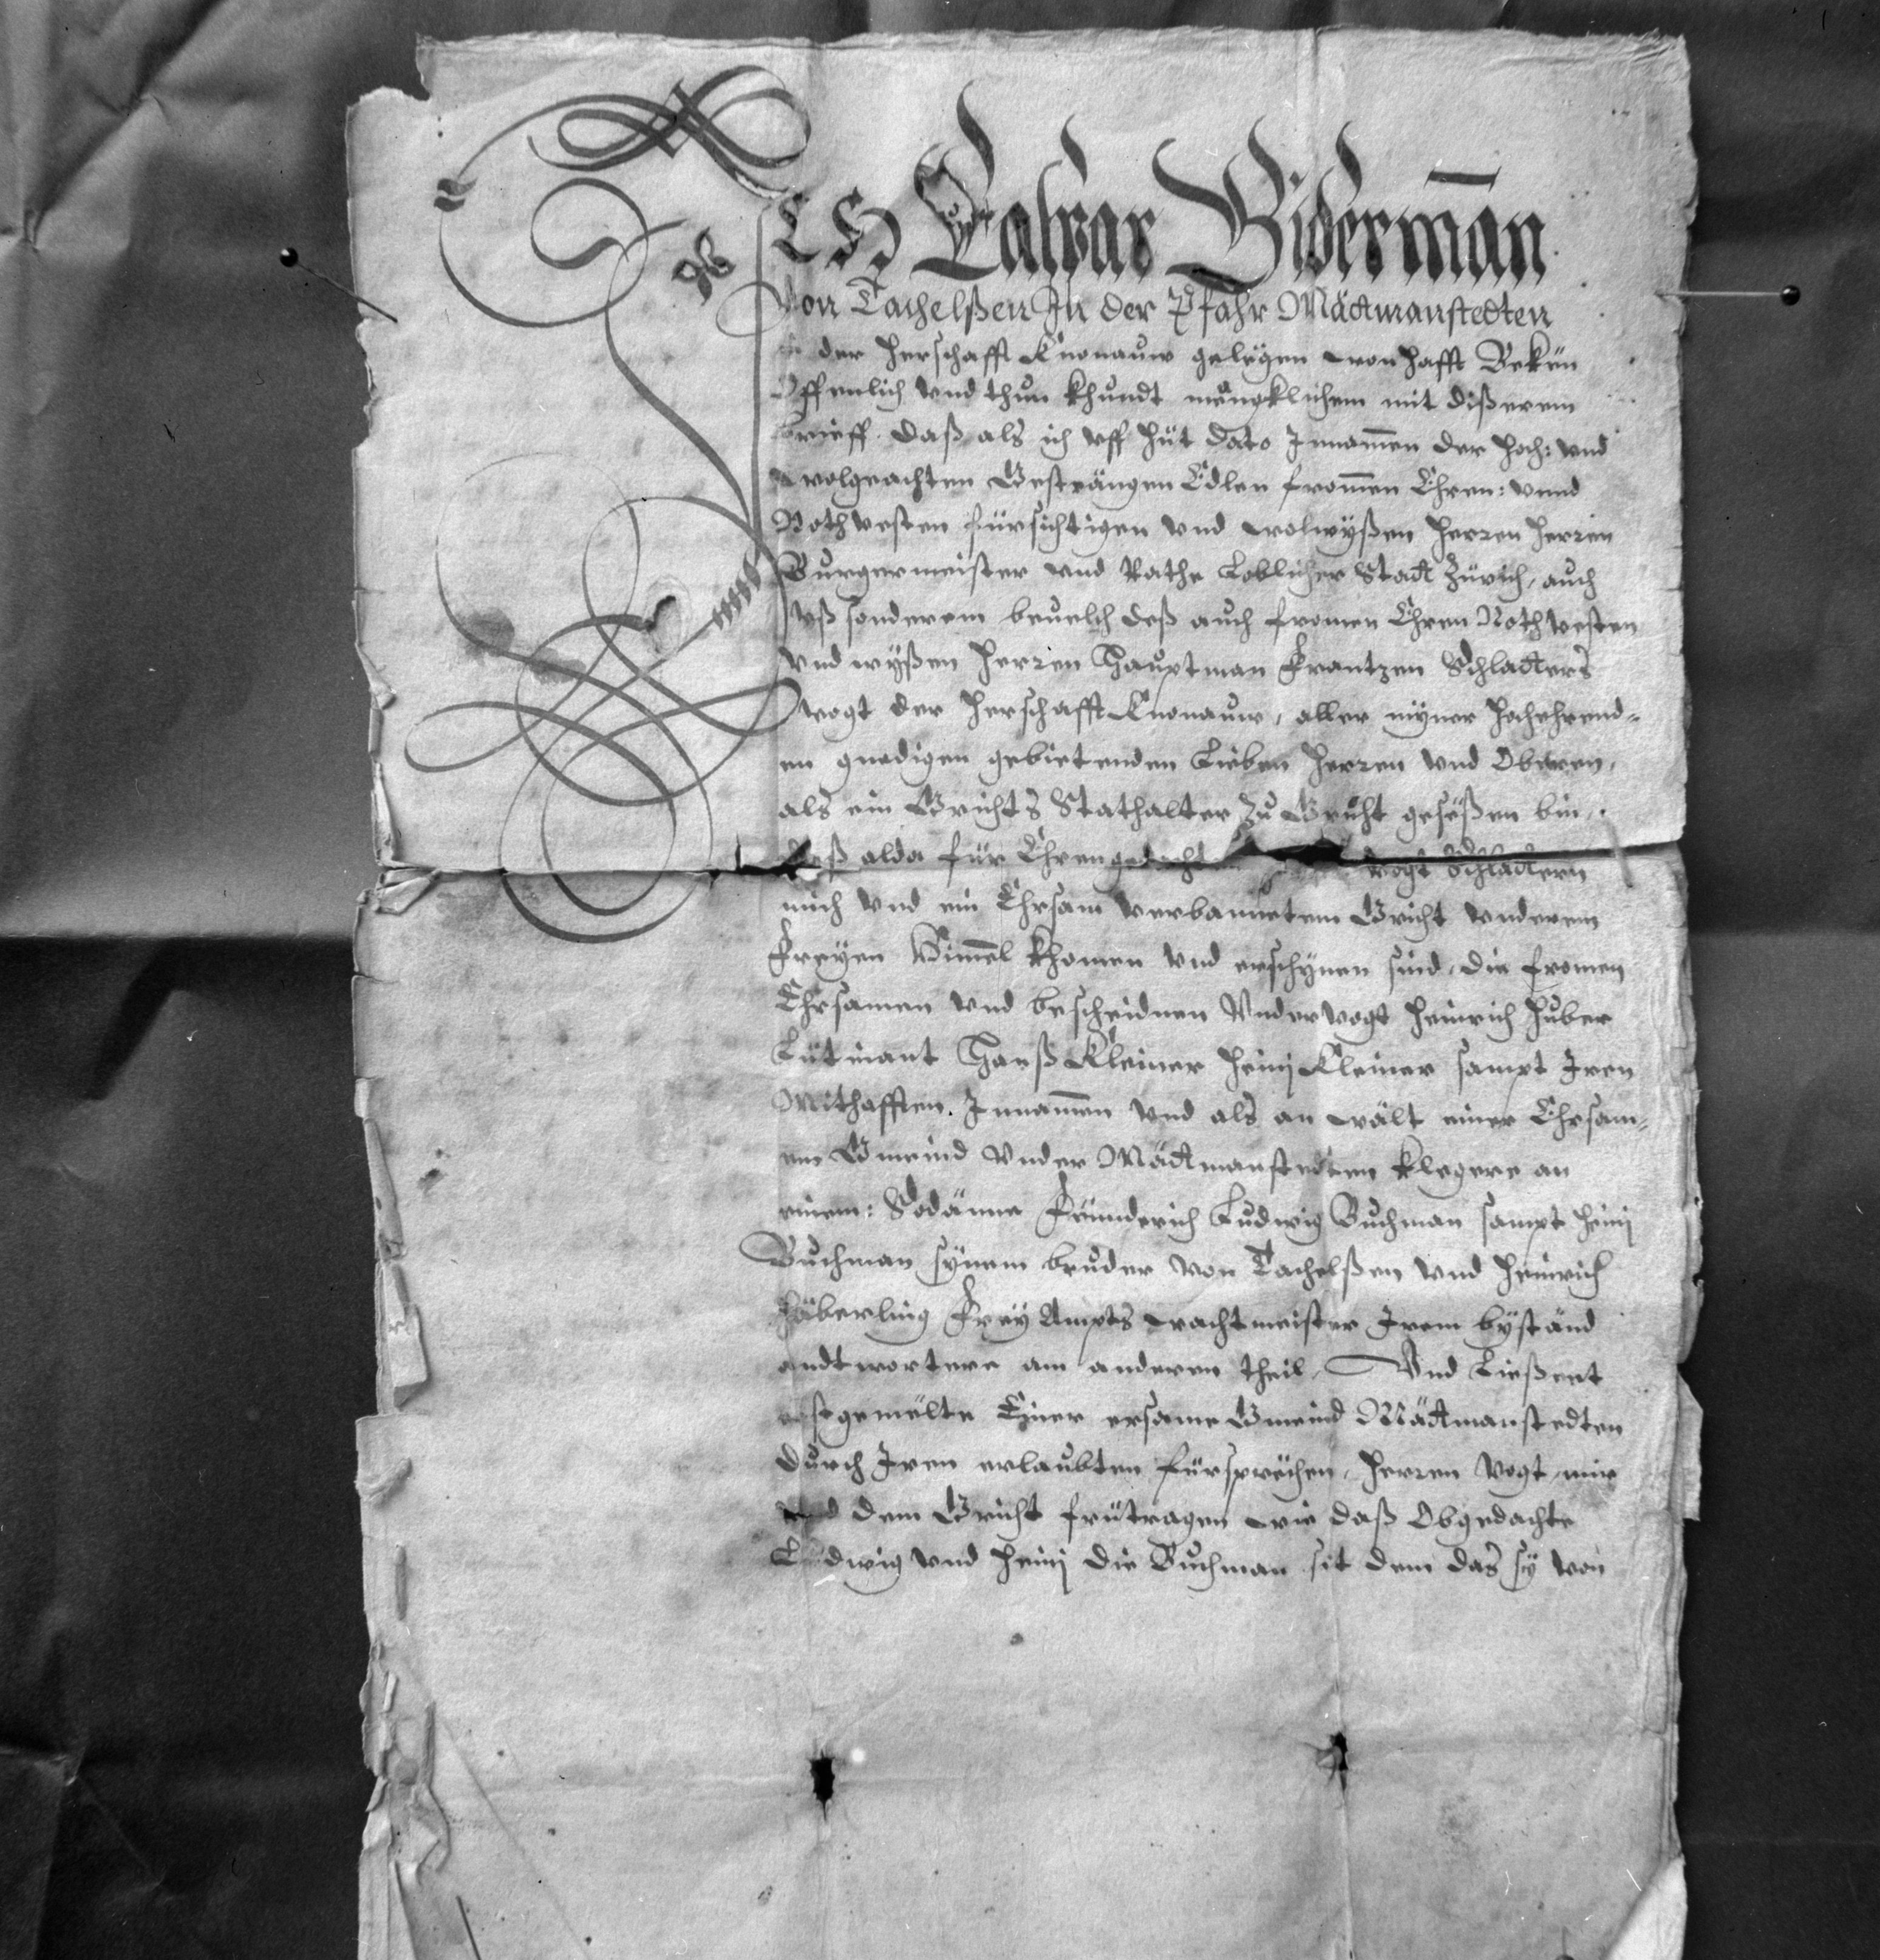 ICH Caspar Biderman̄
Von Tachelßen In der Pfahr Mädtmanstedten
der Herschafft Knonauw gelëgen wonhafft Bekēn
Offenlich vnd thun khundt mëngklichem mit dißerem
brieff. Daß als ich vff hüt dato Innam̄en der Hoch: vnd
wolgeachten Gesträngen Edlen from̄en Ehren: vnnd
Nothvesten fürsichtigen vnd wolwyßen Herren Herren
Burgermeister vnd Rathe Loblicher Stadt Zürich, auch
vß sonderem beuelch deß auch fromen Ehren Nothvesten
vnd wyßen Herren Hauptman Frantzen Schladters
Vogt der Herschafft Knonauw, aller myner Hochehrend=
en gnedigen gebietenden Lieben Herren vnd Oberen,
als ein Grichts Stathalter Zu Gricht geseßen bin,
deß alda für Ehrengedacht Vogt Schladtern
mich vnd ein Ehrsam verbannetem Gricht vnderem
Freyen Him̄el khomen vnd erschynen sind, die fromen
Ehrsamen vnd bescheidnen Vndervogt Heinrich Huber
Lütinant Hanß Kleiner Heinj Kleiner sampt Iren
Mithafften. Innam̄en vnd als an wält einer Ehrsam=
en Gmeind Vnder Mädtmanstedten klegere an
einem: Sodänne Fënnderich Ludwig Buchman sampt Heinj
Buchman synem bruder von Tachelßen vnd Heinrich
Häberling Frey Ampts wachtmeister Irem byständ
andtwortere am anderen theil, Vnd Ließent
erstgemelte Einer ersame Gmeind Mädtmanstedten
durch Iren erlaubten fürsprëchen, Herren Vogt, mir
vnd dem Gricht fürtragen wie daß Obgedachte
Ludwig vnd Heinj die Buchman sit dem das sy von